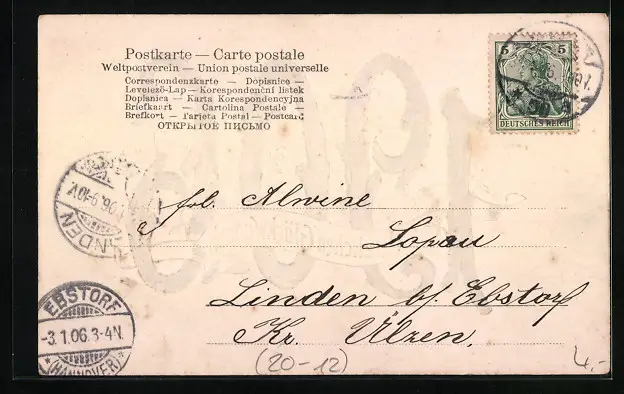 Postkarte — Carte postale
Weltpostverein — Union postale universelle
Correspondenzkarte — Dopisnice —
Levelező-Lap — Korespondenční listek
Dopisnica — Karta Korespondencyjna
Briefkaart — Cartolina Postale —
Brefkort — Tarjeta Postal — Postcard
ОТКРЫТОЕ ПИСЬМО
5 5
DEUTSCHES REICH
frl. Alwine
Lopau
Linden b/ Ebstorf
Kr. Ülzen.
EBSTORF
-3.1.06.3-4N.
*(HANNOVER)*
(20-12)
4.-